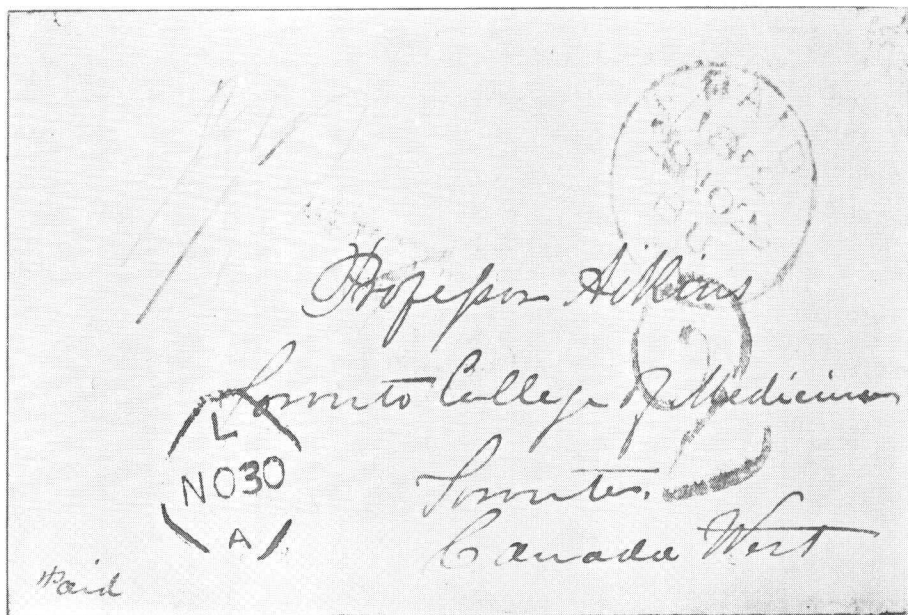 PAID
Professor Aikins
Toronto College of Medicine
L
NO30
A
Toronto.
Canada West
Paid